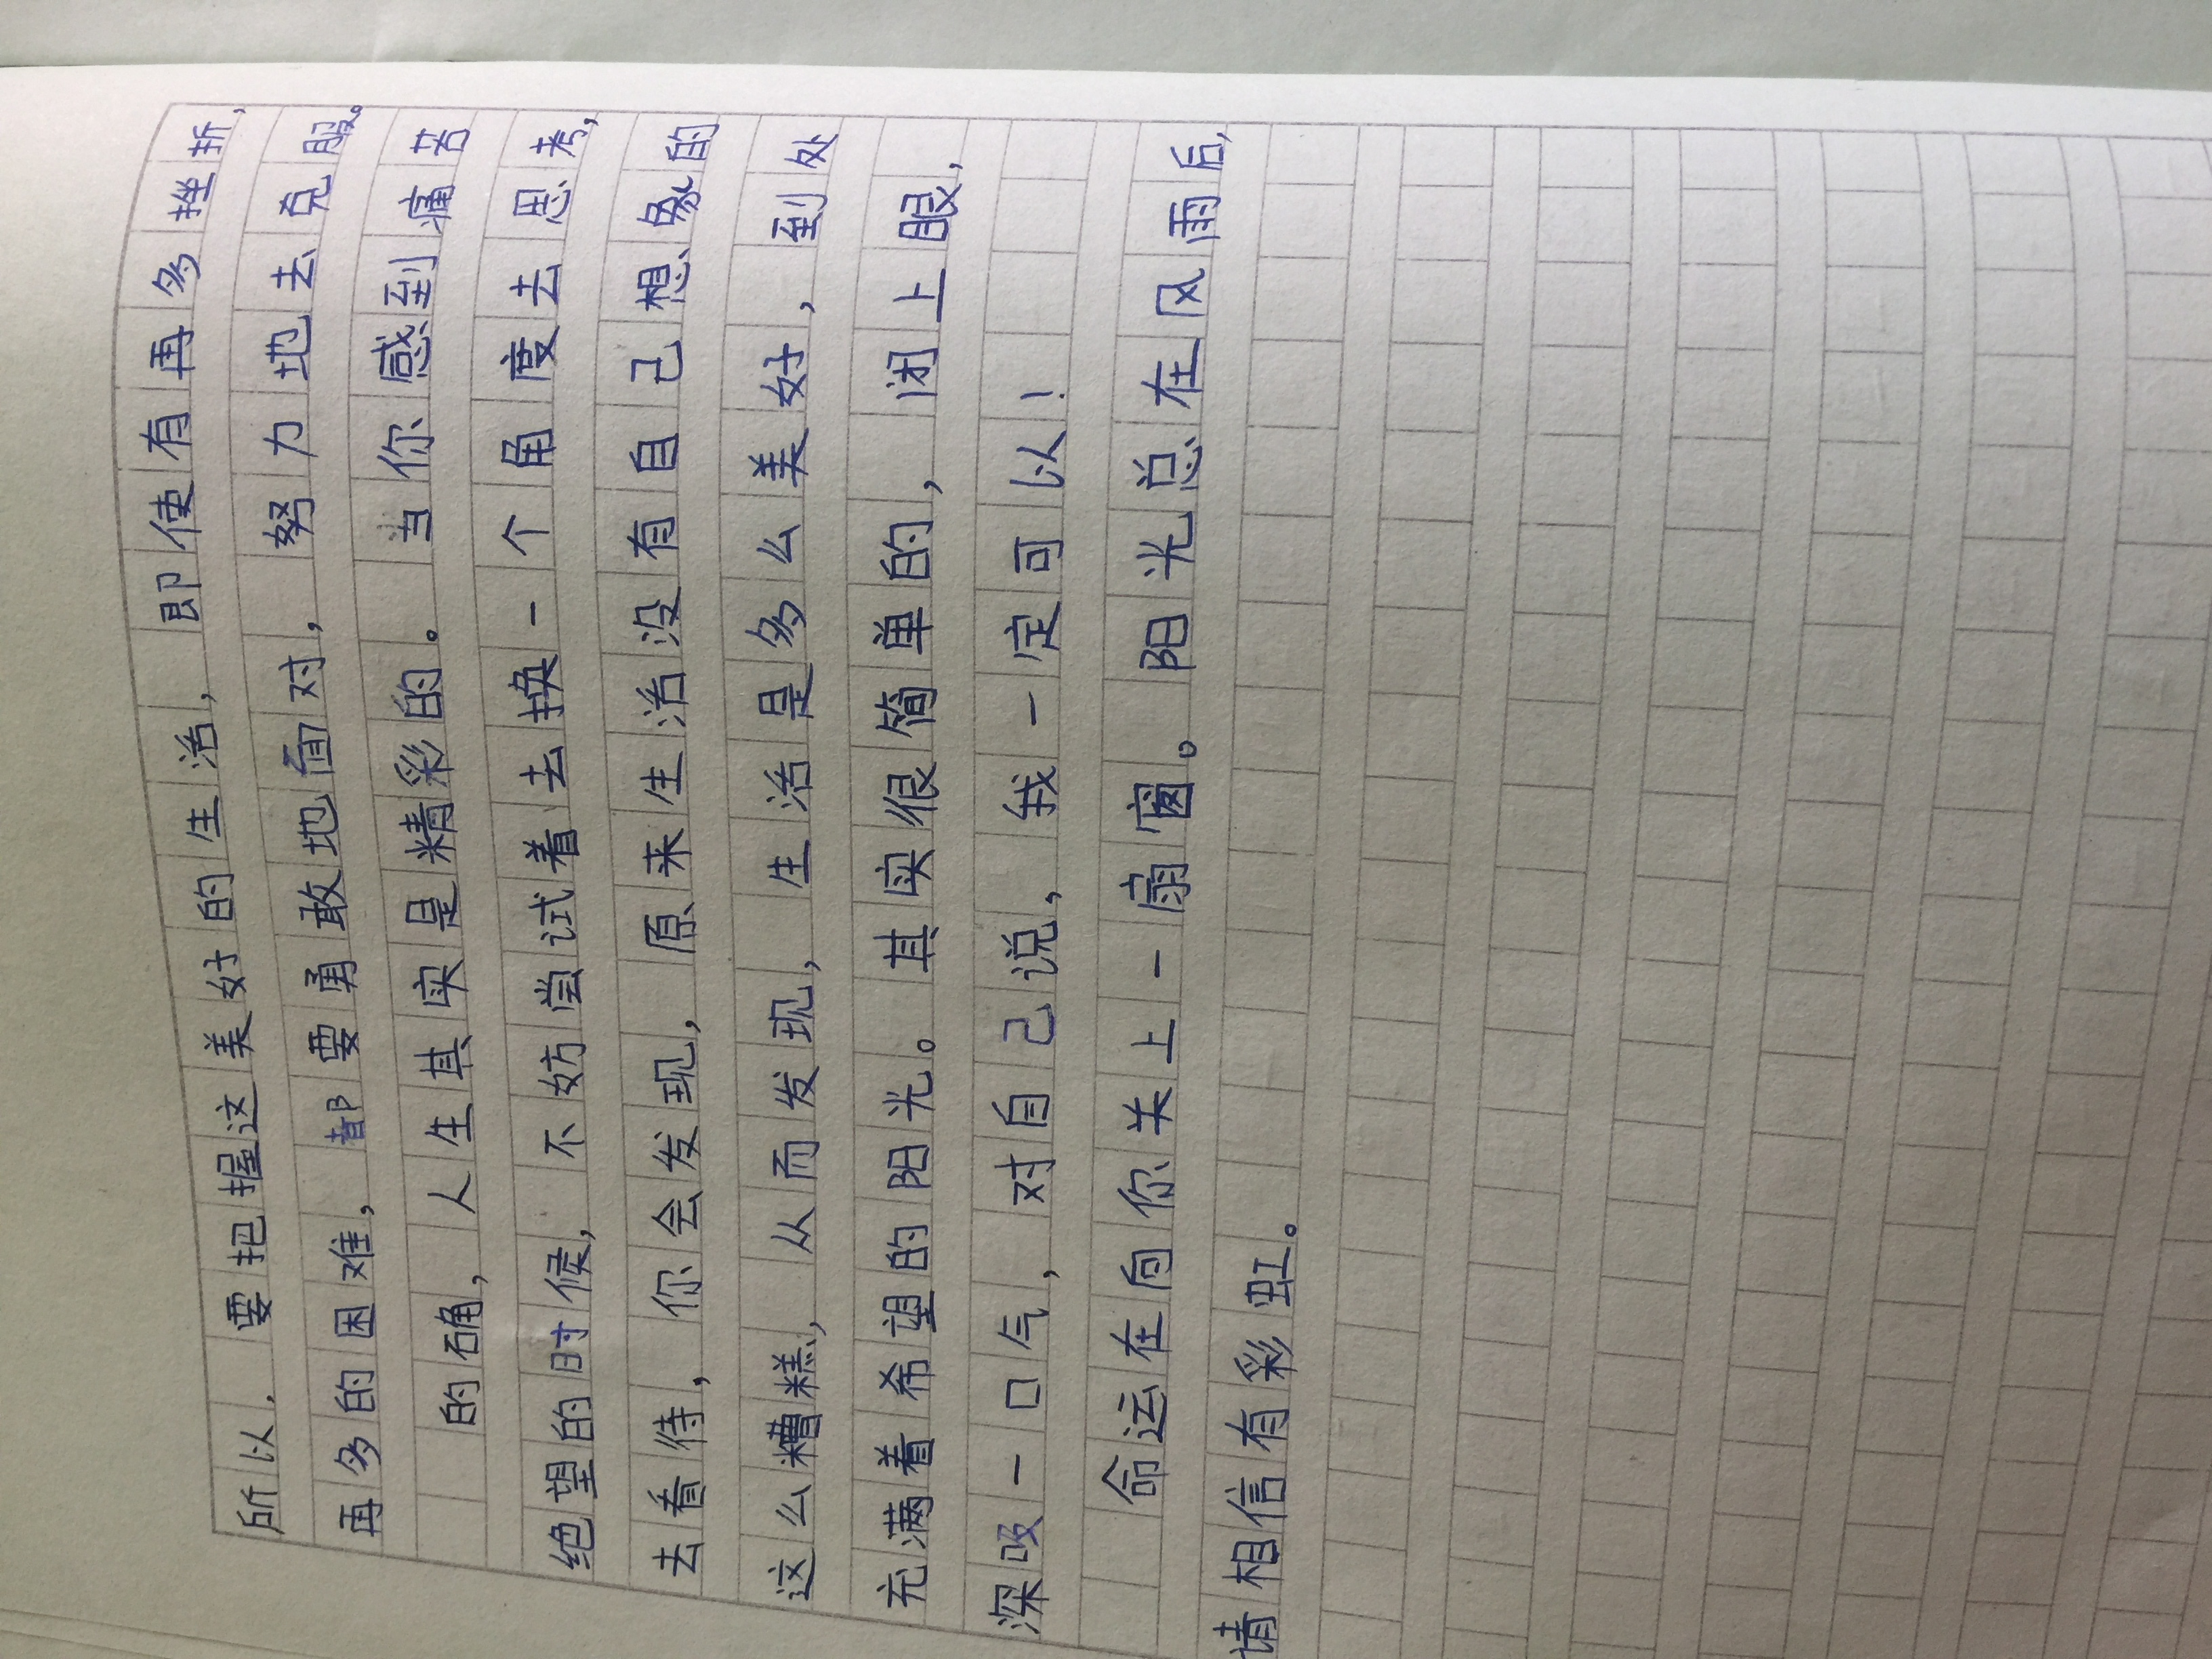 所以,要把握这美好的生活,即使有再多挫折,
再多的困难,都要勇敢地面对,努力地去克服。
的确,人生其实是精彩的。当你感到痛苦
绝望的时候,不妨尝试着去换一个角度去思考,
去看待,你会发现,原来生活没有自己想象的
这么糟糕,从而发现,生活是多么美好,到处
充满着希望的阳光。其实很简单的,闭上眼,
深吸一口气,对自己说,我一定可以!
命运在向你关上一扇窗。阳光总在风雨后,
请相信有彩虹。